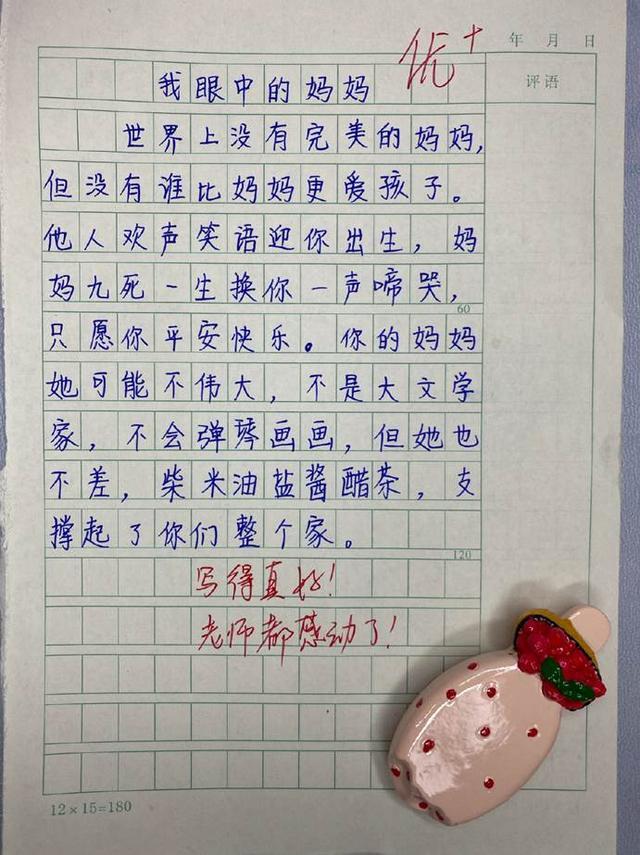 优+
年 月 日
评语
我眼中的妈妈
世界上没有完美的妈妈,
但没有谁比妈妈更爱孩子。
他人欢声笑语迎你出生，妈
妈九死一生换你一声啼哭，
60
只愿你平安快乐。你的妈妈
她可能不伟大，不是大文学
家，不会弹琴画画，但她也
不差，柴米油盐酱醋茶，支
撑起了你们整个家。
120
写得真好！
老师都感动了！
12×15=180